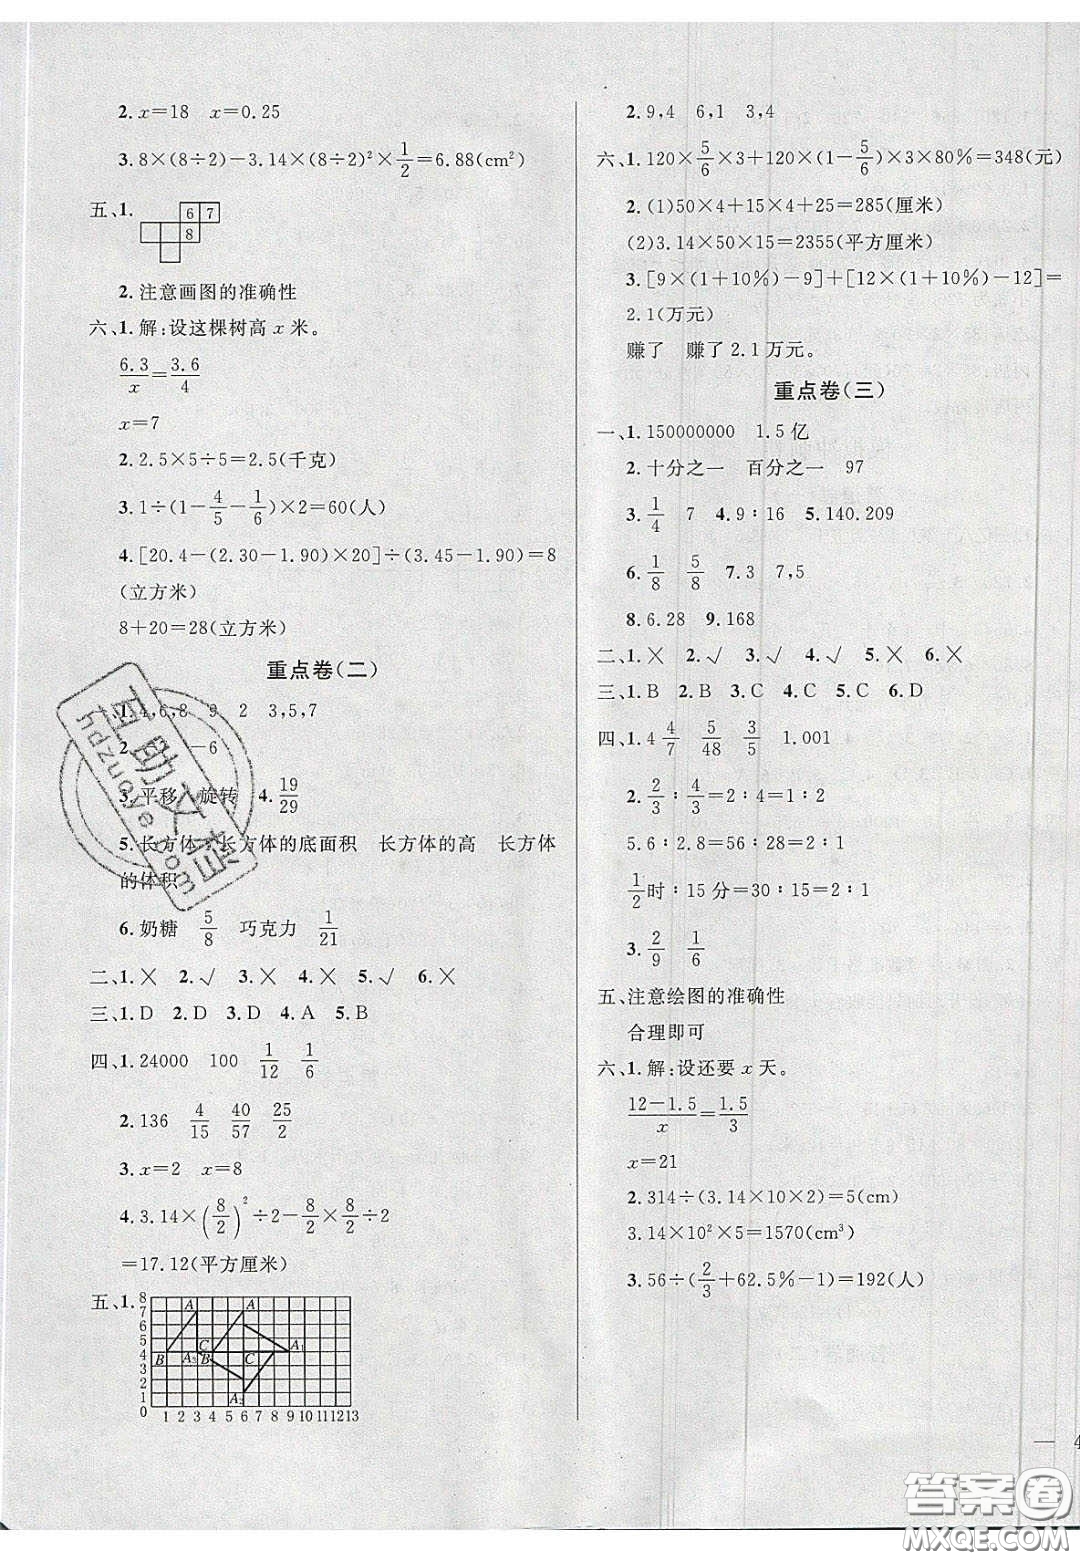 2. x=18 x=0.25
3. 8×(8÷2)-3.14×(8÷2)²×1/2=6.88(cm²)
五、1.
6 7
8
2. 注意画图的准确性
六、1. 解:设这棵树高 x 米。
6.3/x=3.6/4
x=7
2. 2.5×5÷5=2.5(千克)
3. 1÷(1-4/5-1/6)×2=60(人)
4. [20.4-(2.30-1.90)×20]÷(3.45-1.90)=8
(立方米)
8+20=28(立方米)
重点卷(二)
1. 4,6,8 9 2 3,5,7
2. -6
3. 平移 旋转 4. 19/29
5. 长方体 长方体的底面积 长方体的高 长方体
的体积
6. 奶糖 5/8 巧克力 1/21
二、1. × 2. √ 3. × 4. × 5. √ 6. ×
三、1. D 2. D 3. D 4. A 5. B
四、1. 24000 100 1/12 1/6
2. 136 4/15 40/57 25/2
3. x=2 x=8
4. 3.14×(8/2)²÷2-8/2×8/2÷2
=17.12(平方厘米)
五、1.
8
7 A A
6
5
4 B A₃ C B C A₁
3
2
1 A₂
0 1 2 3 4 5 6 7 8 9 10 11 12 13
2. 9,4 6,1 3,4
六、1. 120×5/6×3+120×(1-5/6)×3×80%=348(元)
2. (1)50×4+15×4+25=285(厘米)
(2)3.14×50×15=2355(平方厘米)
3. [9×(1+10%)-9]+[12×(1+10%)-12]=
2.1(万元)
赚了 赚了2.1万元。
重点卷(三)
一、1. 150000000 1.5亿
2. 十分之一 百分之一 97
3. 1/4 7 4. 9∶16 5. 140.209
6. 1/8 5/8 7. 3 7,5
8. 6.28 9. 168
二、1. × 2. √ 3. √ 4. √ 5. × 6. ×
三、1. B 2. B 3. C 4. C 5. C 6. D
四、1. 4 4/7 5/48 3/5 1.001
2. 2/3∶4/3=2∶4=1∶2
5.6∶2.8=56∶28=2∶1
1/2时∶15分=30∶15=2∶1
3. 2/9 1/6
五、注意绘图的准确性
合理即可
六、1. 解:设还要 x 天。
(12-1.5)/x=1.5/3
x=21
2. 314÷(3.14×10×2)=5(cm)
3.14×10²×5=1570(cm³)
3. 56÷(2/3+62.5%-1)=192(人)
— 4
答案圈
MXQE.COM